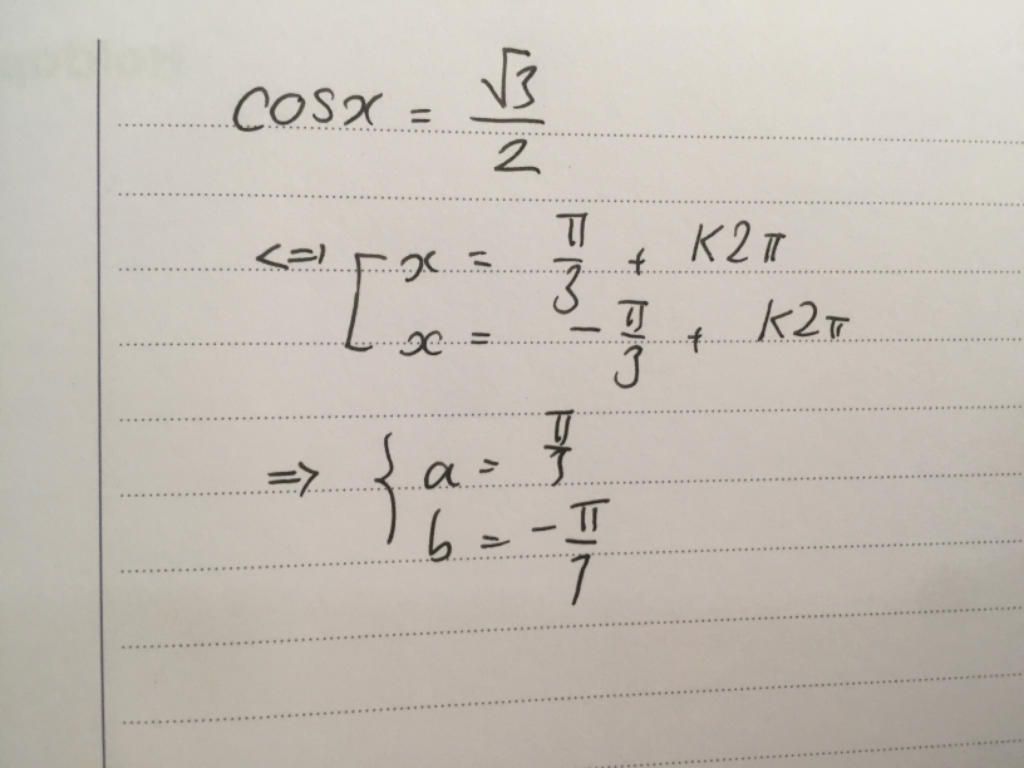 cosx = √3/2
<=> [ x = π/3 + K2π
x = -π/3 + K2π
=> { a = π/3
b = -π/7